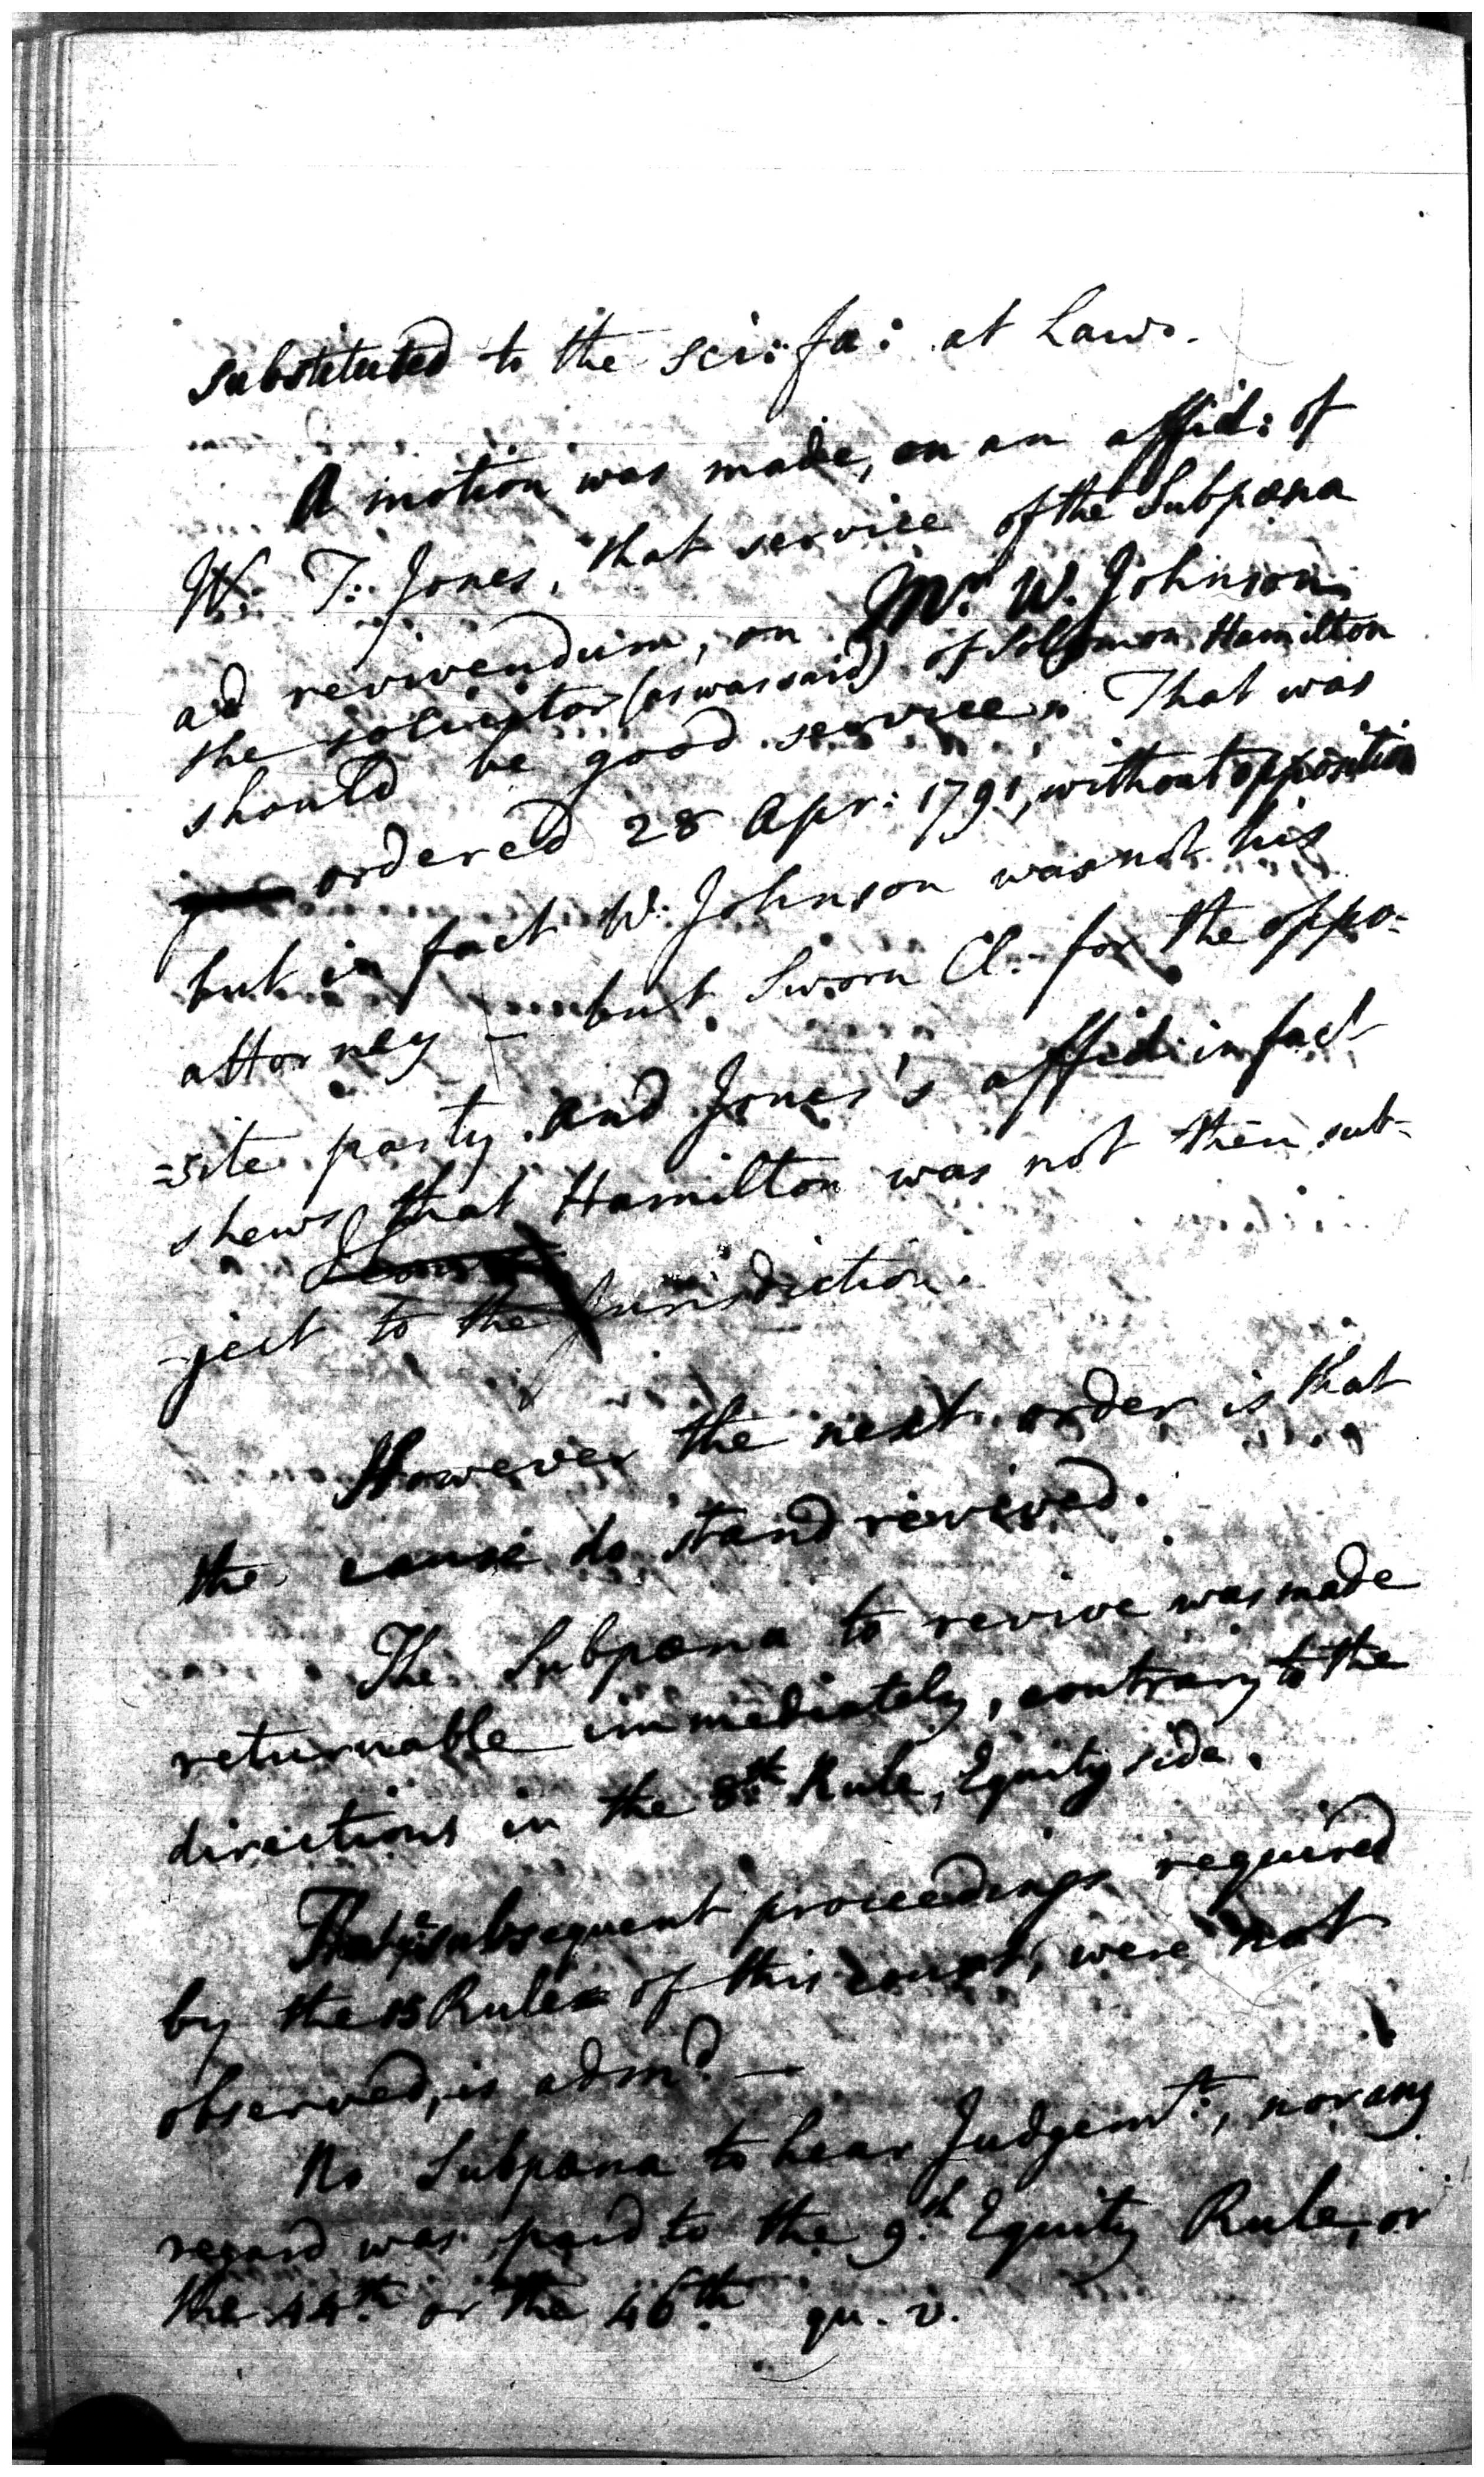 substituted to the sci: fa: at Law.
A motion was made, on an affid: of
W: T: Jones, that service of the Subpœna
ad revivendum, on Mr. W. Johnson,
the solicitor (as was said) of Solomon Hamilton
should be good service. That was
ordered 28 Apr: 1791, without opposition
but in fact W: Johnson was not his
attorney – but Sworn Cl: for the oppo-
=site party. And Jones's affid: in fact
shews that Hamilton was not then sub-
-ject to the Jurisdiction.
However the next order is that
the cause do stand revived.
The Subpœna to revive was made
returnable immediately, contrary to the
directions in the 8th Rule, Equity side.
That ye subsequent proceedings required
by the 15 Rule of this court, were not
observed, is admd. —
No Subpœna to hear Judgemt:, nor any
regard was paid to the 9th Equity Rule, or
the 44th or the 46th qu. v.